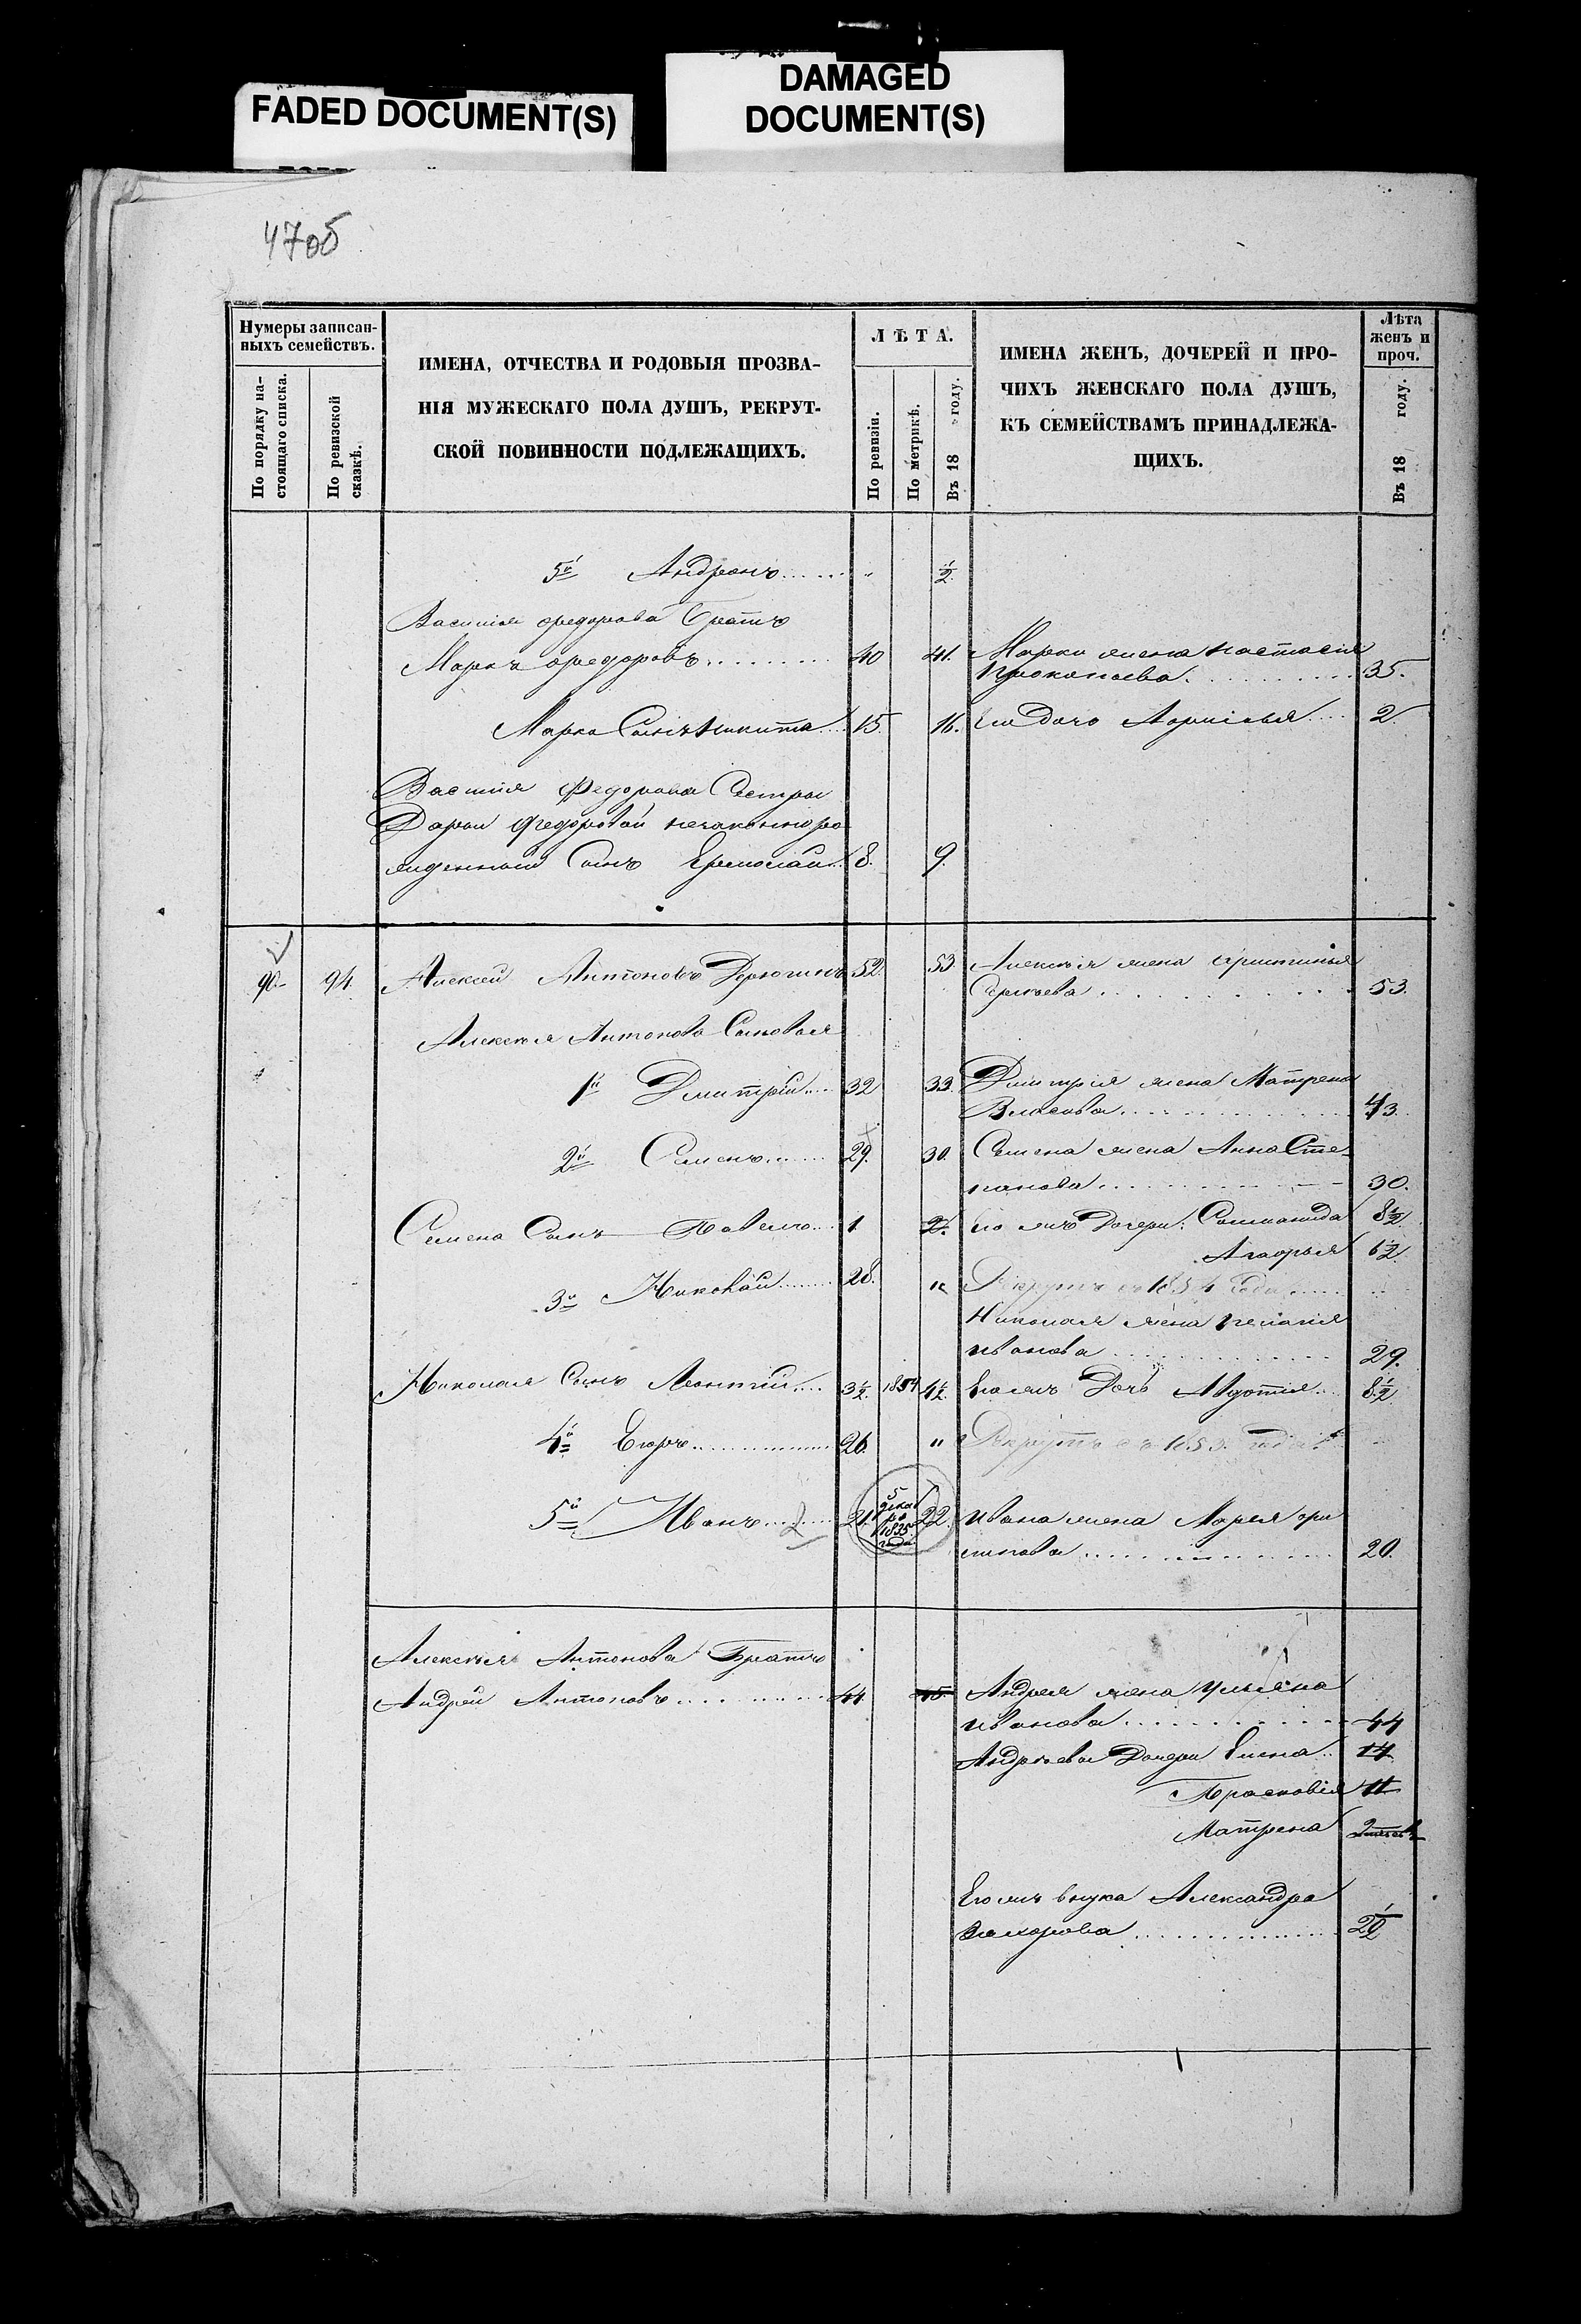 FADED DOCUMENT(S)
DAMAGED
DOCUMENT(S)
47об
Нумеры записан-
ныхъ семействъ.
По порядку на-
стоящаго списка.
По ревизской
сказкѣ.
ИМЕНА, ОТЧЕСТВА И РОДОВЫЯ ПРОЗВА-
НІЯ МУЖЕСКАГО ПОЛА ДУШЪ, РЕКРУТ-
СКОЙ ПОВИННОСТИ ПОДЛЕЖАЩИХЪ.
ЛѢТА.
По ревизіи.
По метрикѣ.
Въ 18 году.
ИМЕНА ЖЕНЪ, ДОЧЕРЕЙ И ПРО-
ЧИХЪ ЖЕНСКАГО ПОЛА ДУШЪ,
КЪ СЕМЕЙСТВАМЪ ПРИНАДЛЕЖА-
ЩИХЪ.
Лѣта
женъ и
проч.
Въ 18 году.
5й Андронъ...... " ½
Василія Федорова Братъ
Маркъ Федоровъ......... 40 41. Марка жена Настасія
Прокопьева.......... 35.
Марка Сынъ Никита... 15. 16. его дочь 2
Василія Федорова Сестры
Дарьи Федоровой незаконноро
жденный Сынъ Ермолай.. 8. 9.
90 94. Алексей Антоновъ 52. 53 Алексѣя жена
53.
Алексѣя Антонова Сыновья
1й Дмитрій.... 32 33. Дмитрія жена Матрена
Власова............ 43.
2й Семенъ...... 29. 30. Семена жена Анна Сте-
панова............ 30.
Семена Сынъ Павелъ... 1. 2. его жъ дочери: Соломонида 8½
Агафья 6½
3й Николай....... 28. " Рекрутъ съ 1854 года......
Николая жена Пелагія
Иванова............ 29.
Николая Сынъ Леонтій.... 3½ 1854 4½ Его жъ Дочь Авдотья... 8½
4й Егоръ.............. 26. " Рекрутъ съ 1853 года
5й Иванъ........ 21. 5
дека
бря
1835
года
22. Ивана жена Марья
20.
Алексѣя Антонова Братъ
Андрей Антоновъ........... 44. 45. Андрея жена Ульяна
Иванова............ 44
Андреева Дочери Елена.. 14
Прасковія 11
Матрена
Его жъ внука Александра